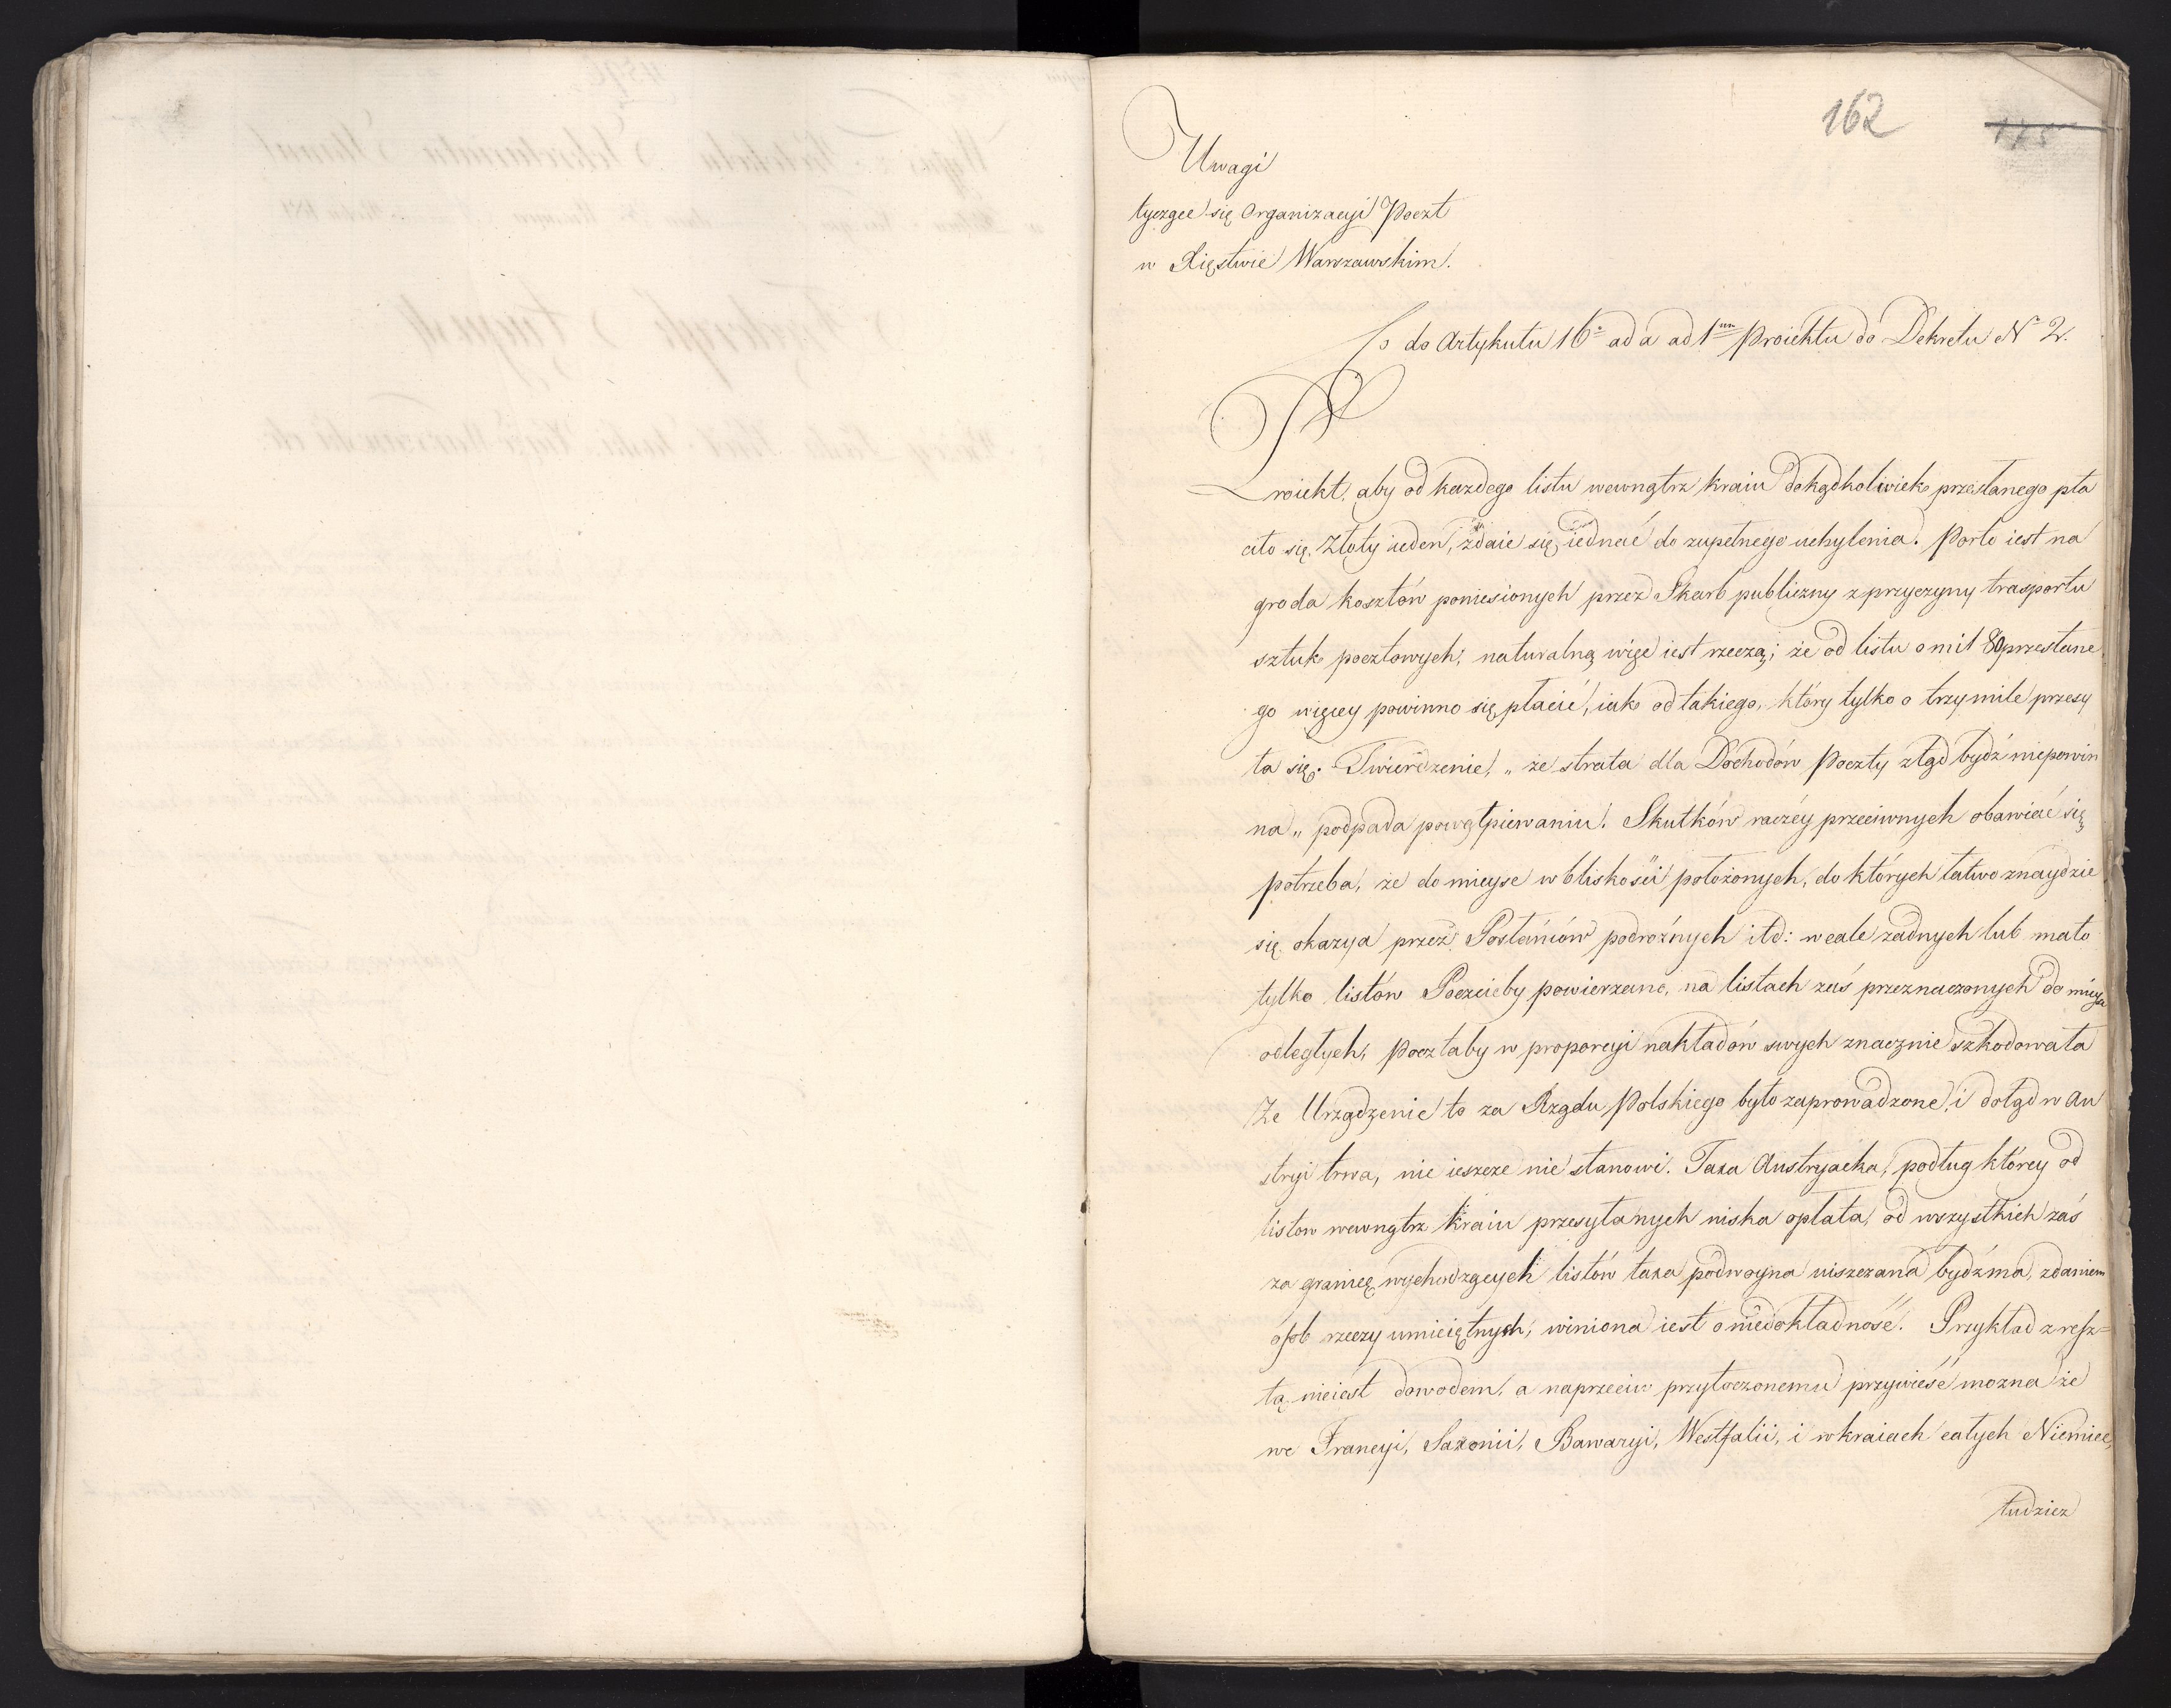 162 175
Uwagi
tyczące się Organizacyi Poczt
w Xięstwie Warszawskim.
Co do Artykułu 16° ad a ad 1um Proiektu do Dekretu N° 2.
Proiekt, aby od każdego listu wewnątrz kraiu dokądkolwiek przesłanego pła
ciło się Złoty ieden, zdaie się iednać do zupełnego uchylenia. Porto iest na
groda kosztów poniesionych przez Skarb publiczny z przyczyny trasportu
sztuk pocztowych; naturalną więc iest rzeczą; że od listu o mil 80 przesłane
go więcey powinno się płacić, iak od takiego, który tylko o trzy mile przesy
ła się. Twierdzenie, „ że strata dla Dochodów Poczty ztąd bydź niepowin
na „ podpada powątpiewaniu. Skutków raczéy przeciwnych obawiać się
potrzeba, że do mieysc w bliskości położonych, do których łatwo znaydzie
się okazya przez Posłańców podróżnych itd: wcale żadnych lub mało
tylko listów Poczcieby powierzano, na listach zaś przeznaczonych do mieysc
odległych, Pocztaby w proporcyi nakładów swych znacznie szkodowała
Że Urządzenie to za Rządu Polskiego było zaprowadzone, i dotąd w Au
stryi trwa, nie ieszcze nie stanowi. Taxa Austryacka, podług którey od
listow wewnątrz kraiu przesyłanych niska opłata, od wszystkich zaś
za granicę wychodzących listów taxa podwoyna uiszczana bydź ma, zdaniem
osób rzeczy umieiętnych, winiona iest o niedokładność. Przykład z resz=
tą nieiest dowodem, a naprzeciw przytoczonemu przywieść można że
we Francyi, Saxonii, Bawaryi, Westfalii, i w kraiach całych Niemiec,
tudzież